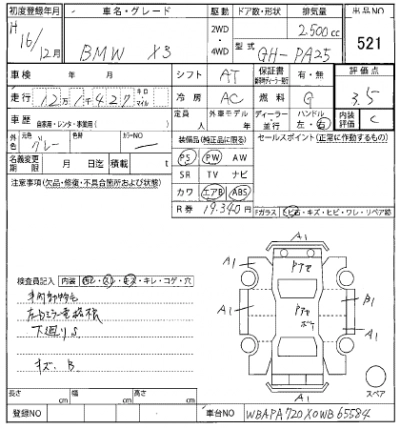 初度登録年月 車名・グレード 駆動 ドア数・形状 排気量 出品NO
H 16/12月 BMW X3 2WD・4WD 2500cc 521
型式 GH-PA25
車検 年 月 シフト AT 保証書 有・無 評価点
走行 12万1千427 キロ マイル 冷房 AC 燃料 G 3.5
車歴 自家用・レンタ・事業用( ) 定員 人 外車モデル 年 ディーラー・並行 ハンドル 左・右 内装評価 C
外色 元色 グレー カラーNO
装備品(純正品に限る) セールスポイント(正常に作動するもの)
名義変更期限 月 日迄 積載 t PS PW AW
注意事項(欠品・修復・不具合箇所および状態) SR TV ナビ
カワ エアB ABS
R券 19,340円
Fガラス ヒビ石・キズ・ヒビ・ワレ・リペア跡
A1
検査員記入 内装 キレ・コゲ・穴
A1 A1
B1
下廻りS
A1 A1
キズ、B
A1
スペア
長さ cm 幅 cm 高さ cm
登録NO 車台NO WBAPA720X0WB65584